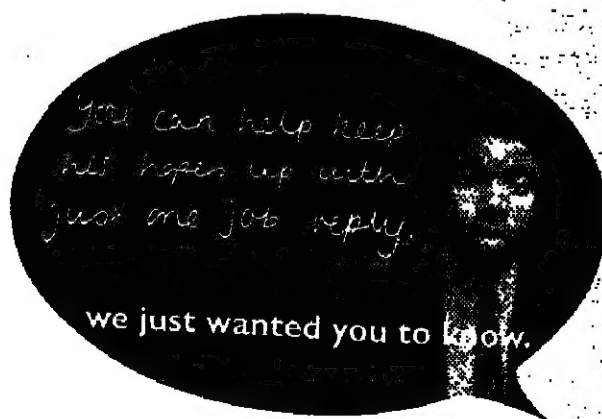 You can help keep
his hopes up with
just one job reply.
we just wanted you to know.